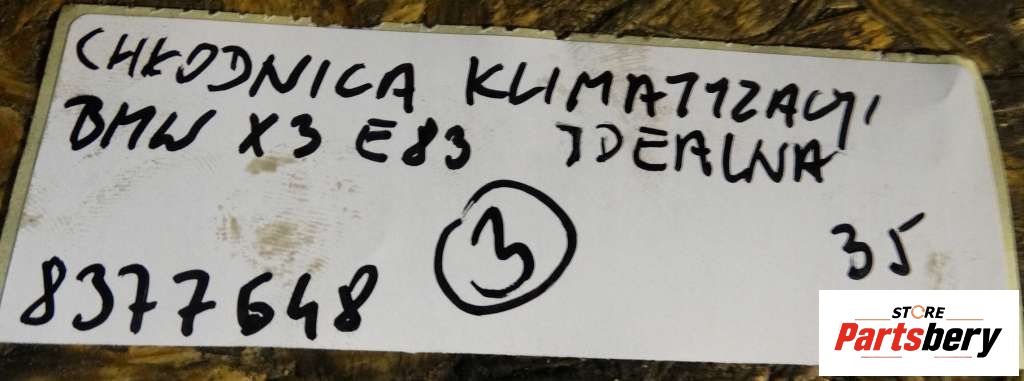 CHŁODNICA KLIMATYZACJI
BMW X3 E83 IDEALNA
3
35
8377648
STORE
Partsbery